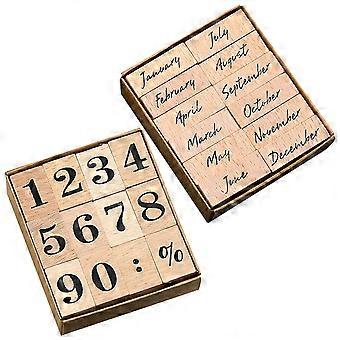 January July
February August
April September
March October
May November
June December
1 2 3 4
5 6 7 8
9 0 : %